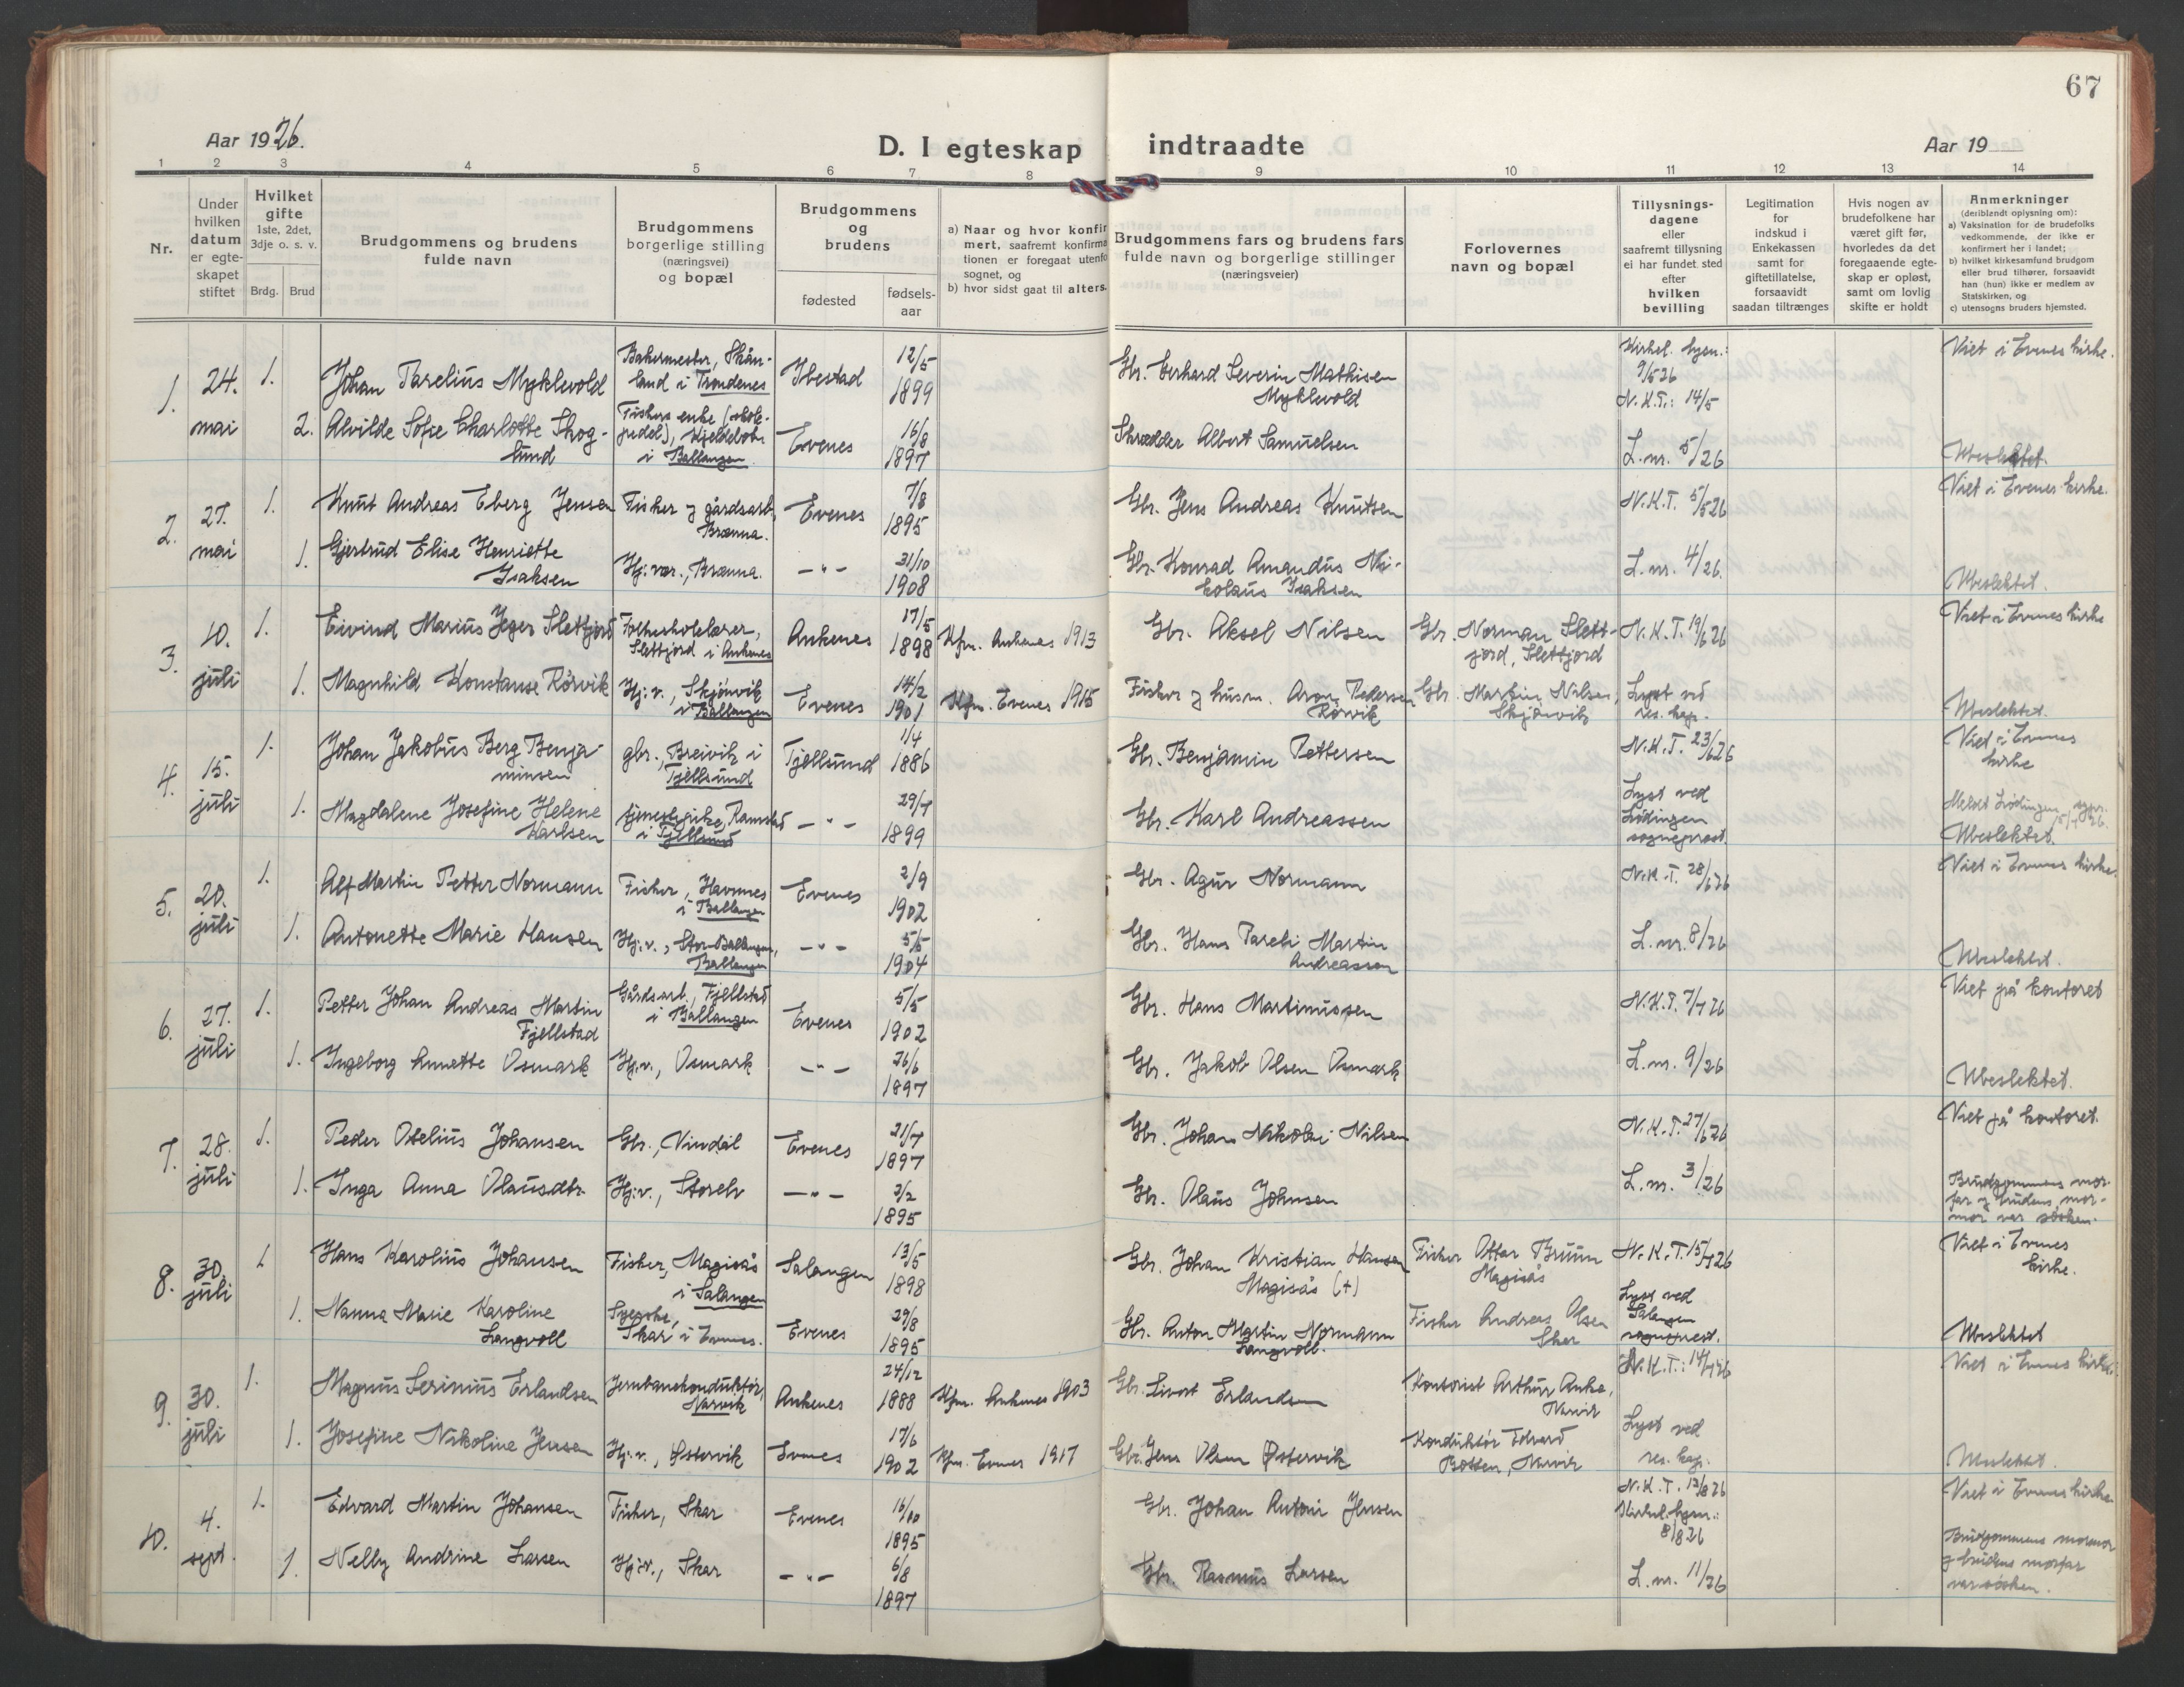 67
Aar 1926.
D. I egteskap indtraadte
Aar 19
1 2 3 4 5 6 7 8 9 10 11 12 13 14
Nr.
Under hvilken datum er egteskapet stiftet
Hvilket gifte 1ste, 2det, 3dje o. s. v.
Brdg. Brud
Brudgommens og brudens fulde navn
Brudgommens borgerlige stilling (næringsvei) og bopæl
Brudgommens og brudens
fødested
fødsels-aar
a) Naar og hvor konfir
mert, saafremt konfirma
tionen er foregaat utenfo
sognet, og
b) hvor sidst gaat til alters.
Brudgommens fars og brudens fars
fulde navn og borgerlige stillinger
(næringsveier)
Forlovernes
navn og bopæl
Tillysnings-
dagene
eller
saafremt tillysning
ei har fundet sted
efter
hvilken
bevilling
Legitimation
for
indskud i
Enkekassen
samt for
giftetillatelse,
forsaavidt
saadan tiltrænges
Hvis nogen av
brudefolkene har
været gift før,
hvorledes da det
foregaaende egte-
skap er opløst,
samt om lovlig
skifte er holdt
Anmerkninger
(deriblandt oplysning om):
a) Vaksination for de brudefolks
vedkommende, der ikke er
konfirmert her i landet;
b) hvilket kirkesamfund brudgom
eller brud tilhører, forsaavidt
han (hun) ikke er medlem av
Statskirken, og
c) utensogns bruders hjemsted.
1. 24. mai 1. Johan Parelius Myklevold Bakermester, Skån-land i Trondenes Ibestad 12/5 1899 Gbr. Gerhard Severin Mathisen Myklevold Kirkel. bgm.: 9/5 26 N.K.T.: 14/5 Viet i Evenes kirke.
2. Alvilde Sofie Charlotte Skog-lund Fiskers enke i Ballangen Evenes 16/8 1897 Skrædder Albert Samuelsen L.nr. 5/26 Ubeslektet.
2. 27. mai 1. Knut Andreas Eberg Jensen Fisker og gårdsarb., Brænna. Evenes 7/8 1895 Gbr. Jens Andreas Knutsen N.K.T. 5/5 26 Viet i Evenes kirke.
1. Gjertrud Elise Henriette Isaksen Hj: vær., Brænna. -"- 31/10 1908 Gbr. Konrad Amandus Ni-kolaus Isaksen L.nr. 4/26. Ubeslektet.
3. 10. juli 1. Eivind Marius Jeger Slettjord Folkeskolelærer, Slettjord i Ankenes Ankenes 17/5 1898 Kfm. Ankenes 1913 Gbr. Aksel Nilsen Gbr. Norman Slett-jord, Slettjord N.K.T. 19/6 26 Viet i Evenes kirke
1. Magnhild Konstanse Rörvik Hj: v., Skjönvik i Ballangen Evenes 14/2 1901 Kfm. Evenes 1915 Fisker og husm. Aron Pedersen Rörvik Gbr. Martin Nilsen, Skjönvik Lyst ved res. kap. Ubeslektet.
4. 15. juli 1. Johan Jakobus Berg Benja-minsen gbr., Breivik i Tjellsund Tjellsund 1/4 1886 Gbr. Benjamin Pettersen N.K.T. 23/6 26 Viet i Evenes kirke
1. Magdalene Josefine Helene Karlsen tjenestepike, Ramstad i Tjellsund -"- 29/7 1899 Gbr. Karl Andreassen Lyst ved Lödingen sogneprest. Meldt Lödingen Ubeslektet.
5. 20. juli 1. Alf Martin Petter Normann Fisker, Havnnes i Ballangen Evenes 2/9 1902 Gbr. Agur Normann N.K.T. 28/6 26 Viet i Evenes kirke.
1. Antonette Marie Hansen Hj: v., Stor-Ballangen, Ballangen -"- 5/5 1904 Gbr. Hans Pareli Martin Andreassen L.nr. 8/26 Ubeslektet.
6. 27. juli 1. Petter Johan Andreas Martin Fjellstad Gårdsarb., Fjellstad i Ballangen Evenes 5/5 1902 Gbr. Hans Martinussen N.K.T. 7/7 26 Viet på kontoret
1. Ingeborg Annette Osmark Hj. v., Osmark -"- 26/6 1897 Gbr. Jakob Olsen Osmark L.nr. 9/26 Ubeslektet.
7. 28. juli 1. Peder Otelius Johansen Gbr., Vindal Evenes 21/7 1897 Gbr. Johan Nikolai Nilsen N.K.T. 27/6 26 Viet på kontoret.
1. Inga Anna Olausdtr. Hj: v., Storelv -"- 2/2 1895 Gbr. Olaus Johnsen L.nr. 3/26 Brudgommens mor-far og brudens mor-mor var söskn.
8. 30. juli 1. Hans Karolius Johansen Fisker, Magisås i Salangen Salangen 13/5 1898 Gbr. Johan Kristian Hansen Magisås (+) Fisker Ottar Bruun Magisås N.K.T. 15/7 26 Viet i Evenes kirke.
1. Nanna Marie Karoline Langvoll Syerske, Skar i Evenes. Evenes 29/8 1895 Gbr. Anton Martin Normann Langvoll. Fisker Andreas Olsen Skar Lyst ved Salangen sogneprest. Ubeslektet
9. 30. juli 1. Magnus Serinius Erlandsen Jernbanekonduktör, Narvik Ankenes 24/12 1888 Kfm. Ankenes 1903 Gbr. Sivert Erlandsen Kontorist Arthur Anke, Narvik N.K.T.: 14/7 26 Viet i Evenes kirke.
1. Josefine Nikoline Jensen Hj: v., Østervik Evenes 17/6 1902 Kfm. Evenes 1917 Gbr. Jens Olsen Østervik Konduktör Edvard Botten, Narvik Lyst ved res. kap. Ubeslektet.
10. 4. sept. 1. Edvard Martin Johansen Fisker, Skar Evenes 16/10 1895 Gbr. Johan Antoni Jensen N.K.T. 13/8 26 Kirkel. bgm.: 8/8 26 Viet i Evenes kirke
1. Nelly Andrine Larsen Hj: v., Skar -"- 6/8 1897 Gbr. Rasmus Larsen L.nr. 11/26 Brudgommens mormor og brudens morfar var söskn.